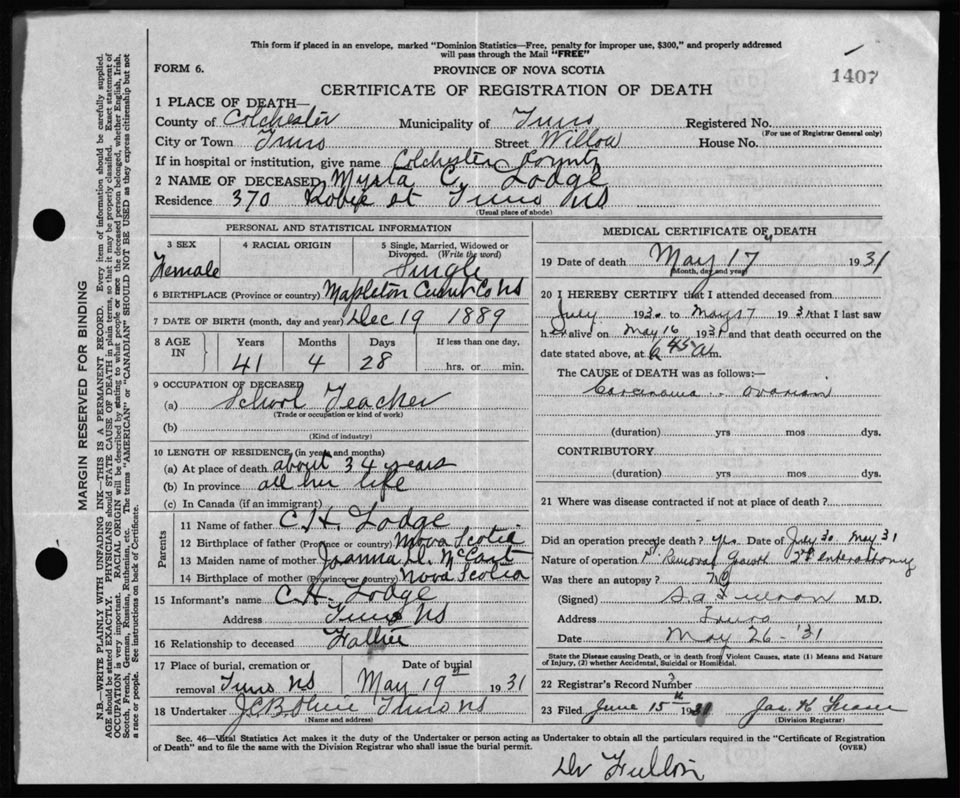 This form if placed in an envelope, marked "Dominion Statistics—Free, penalty for improper use, $300," and properly addressed
will pass through the Mail "FREE"
FORM 6.
PROVINCE OF NOVA SCOTIA
1407
CERTIFICATE OF REGISTRATION OF DEATH
1 PLACE OF DEATH—
County of Colchester Municipality of Truro Registered No.
(For use of Registrar General only)
City or Town Truro Street Willow House No.
If in hospital or institution, give name Colchester County
2 NAME OF DECEASED Myrta C. Lodge
Residence 370 Robie st Truro NS
(Usual place of abode)
PERSONAL AND STATISTICAL INFORMATION
3 SEX 4 RACIAL ORIGIN 5 Single, Married, Widowed or Divorced. (Write the word)
Female Single
6 BIRTHPLACE (Province or country) Mapleton Cumb Co NS
7 DATE OF BIRTH (month, day and year) Dec 19 1889
8 AGE IN Years Months Days If less than one day.
41 4 28 hrs. or min.
9 OCCUPATION OF DECEASED
(a) School Teacher
(Trade or occupation or kind of work)
(b)
(Kind of industry)
10 LENGTH OF RESIDENCE (in years and months)
(a) At place of death about 34 years
(b) In province all her life
(c) In Canada (if an immigrant)
Parents
11 Name of father C. H. Lodge
12 Birthplace of father (Province or country) Nova Scotia
13 Maiden name of mother Joanna
14 Birthplace of mother (Province or country) Nova Scotia
15 Informant's name C. H. Lodge
Address Truro NS
16 Relationship to deceased Father
17 Place of burial, cremation or removal Truro NS
Date of burial May 19th 1931
18 Undertaker Truro NS
(Name and address)
MEDICAL CERTIFICATE OF DEATH
19 Date of death May 17 1931
(Month, day and year)
20 I HEREBY CERTIFY that I attended deceased from
July 1930 to May 17 1931 that I last saw
her alive on May 16 1931 and that death occurred on the
date stated above, at 6 45 A m.
The CAUSE of DEATH was as follows:—
Carcinoma ovarian
(duration) yrs mos dys.
CONTRIBUTORY
(duration) yrs mos dys.
21 Where was disease contracted if not at place of death?
Did an operation precede death? yes Date of July 30 May 31
Nature of operation 1st Removal Growth 2nd
Was there an autopsy? No
(Signed) M.D.
Address Truro
Date May 26 - '31
State the Disease causing Death, or in death from Violent Causes, state (1) Means and Nature
of Injury, (2) whether Accidental, Suicidal or Homicidal.
22 Registrar's Record Number
23 Filed June 15th 1931 Jas. K Fraser
(Division Registrar)
Sec. 46—Vital Statistics Act makes it the duty of the Undertaker or person acting as Undertaker to obtain all the particulars required in the "Certificate of Registration
of Death" and to file the same with the Division Registrar who shall issue the burial permit.
(OVER)
Dr
MARGIN RESERVED FOR BINDING
N.B.—WRITE PLAINLY WITH UNFADING INK—THIS IS A PERMANENT RECORD. Every item of information should be carefully supplied.
AGE should be stated EXACTLY. PHYSICIANS should STATE CAUSE OF DEATH in plain terms, so that it may be properly classified. Exact statement of
OCCUPATION is very important. RACIAL ORIGIN will be described by stating to what people or race the deceased person belonged, whether English, Irish,
Scotch, French, German, Russian, Ruthenian, etc. The terms "AMERICAN" or "CANADIAN" SHOULD NOT BE USED as they express citizenship but not
a race or people. See instructions on back of Certificate.